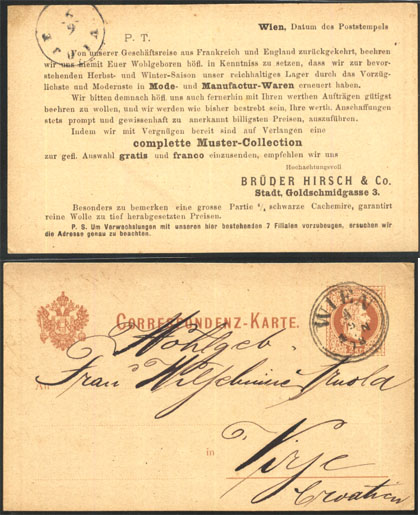 Wien, Datum des Poststempels
P. T.
Von unserer Geschäftsreise aus Frankreich und England zurückgekehrt, beehren
wir uns hiemit Euer Wohlgeboren höfl. in Kenntniss zu setzen, dass wir zur bevor-
stehenden Herbst- und Winter-Saison unser reichhaltiges Lager durch das Vorzüg-
lichste und Modernste in Mode- und Manufactur-Waren erneuert haben.
Wir bitten demnach höfl. uns auch fernerhin mit Ihren werthen Aufträgen gütigst
beehren zu wollen, und wir werden wie bisher bestrebt sein, Ihre werth. Anschaffungen
stets prompt und gewissenhaft zu anerkannt billigsten Preisen, auszuführen.
Indem wir mit Vergnügen bereit sind auf Verlangen eine
complette Muster-Collection
zur gefl. Auswahl gratis und franco einzusenden, empfehlen wir uns
Hochachtungsvoll
BRÜDER HIRSCH & Co.
Stadt, Goldschmidgasse 3.
Besonders zu bemerken eine grosse Partie schwarze Cachemire, garantirt
reine Wolle zu tief herabgesetzten Preisen.
P. S. Um Verwechslungen mit unseren hier bestehenden 7 Filialen vorzubeugen, ersuchen wir
die Adresse genau zu beachten.
CORRESPONDENZ-KARTE.
WIEN
Wohlgeb
An Frau Wilhelmine Arnold
in Virje
Croatien